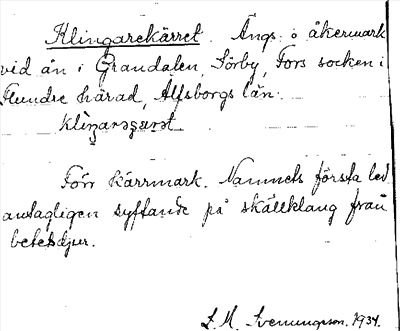 Klingarekärret. Ängs o åkermark
vid ån i Grandalen, Sörby, Fors socken i
Flundre härad, Älfsborgs län.
Förr kärrmark. Namnets första led
antagligen syftande på skällklang från
betesdjur.
L. M. Svenungsson. 1934.